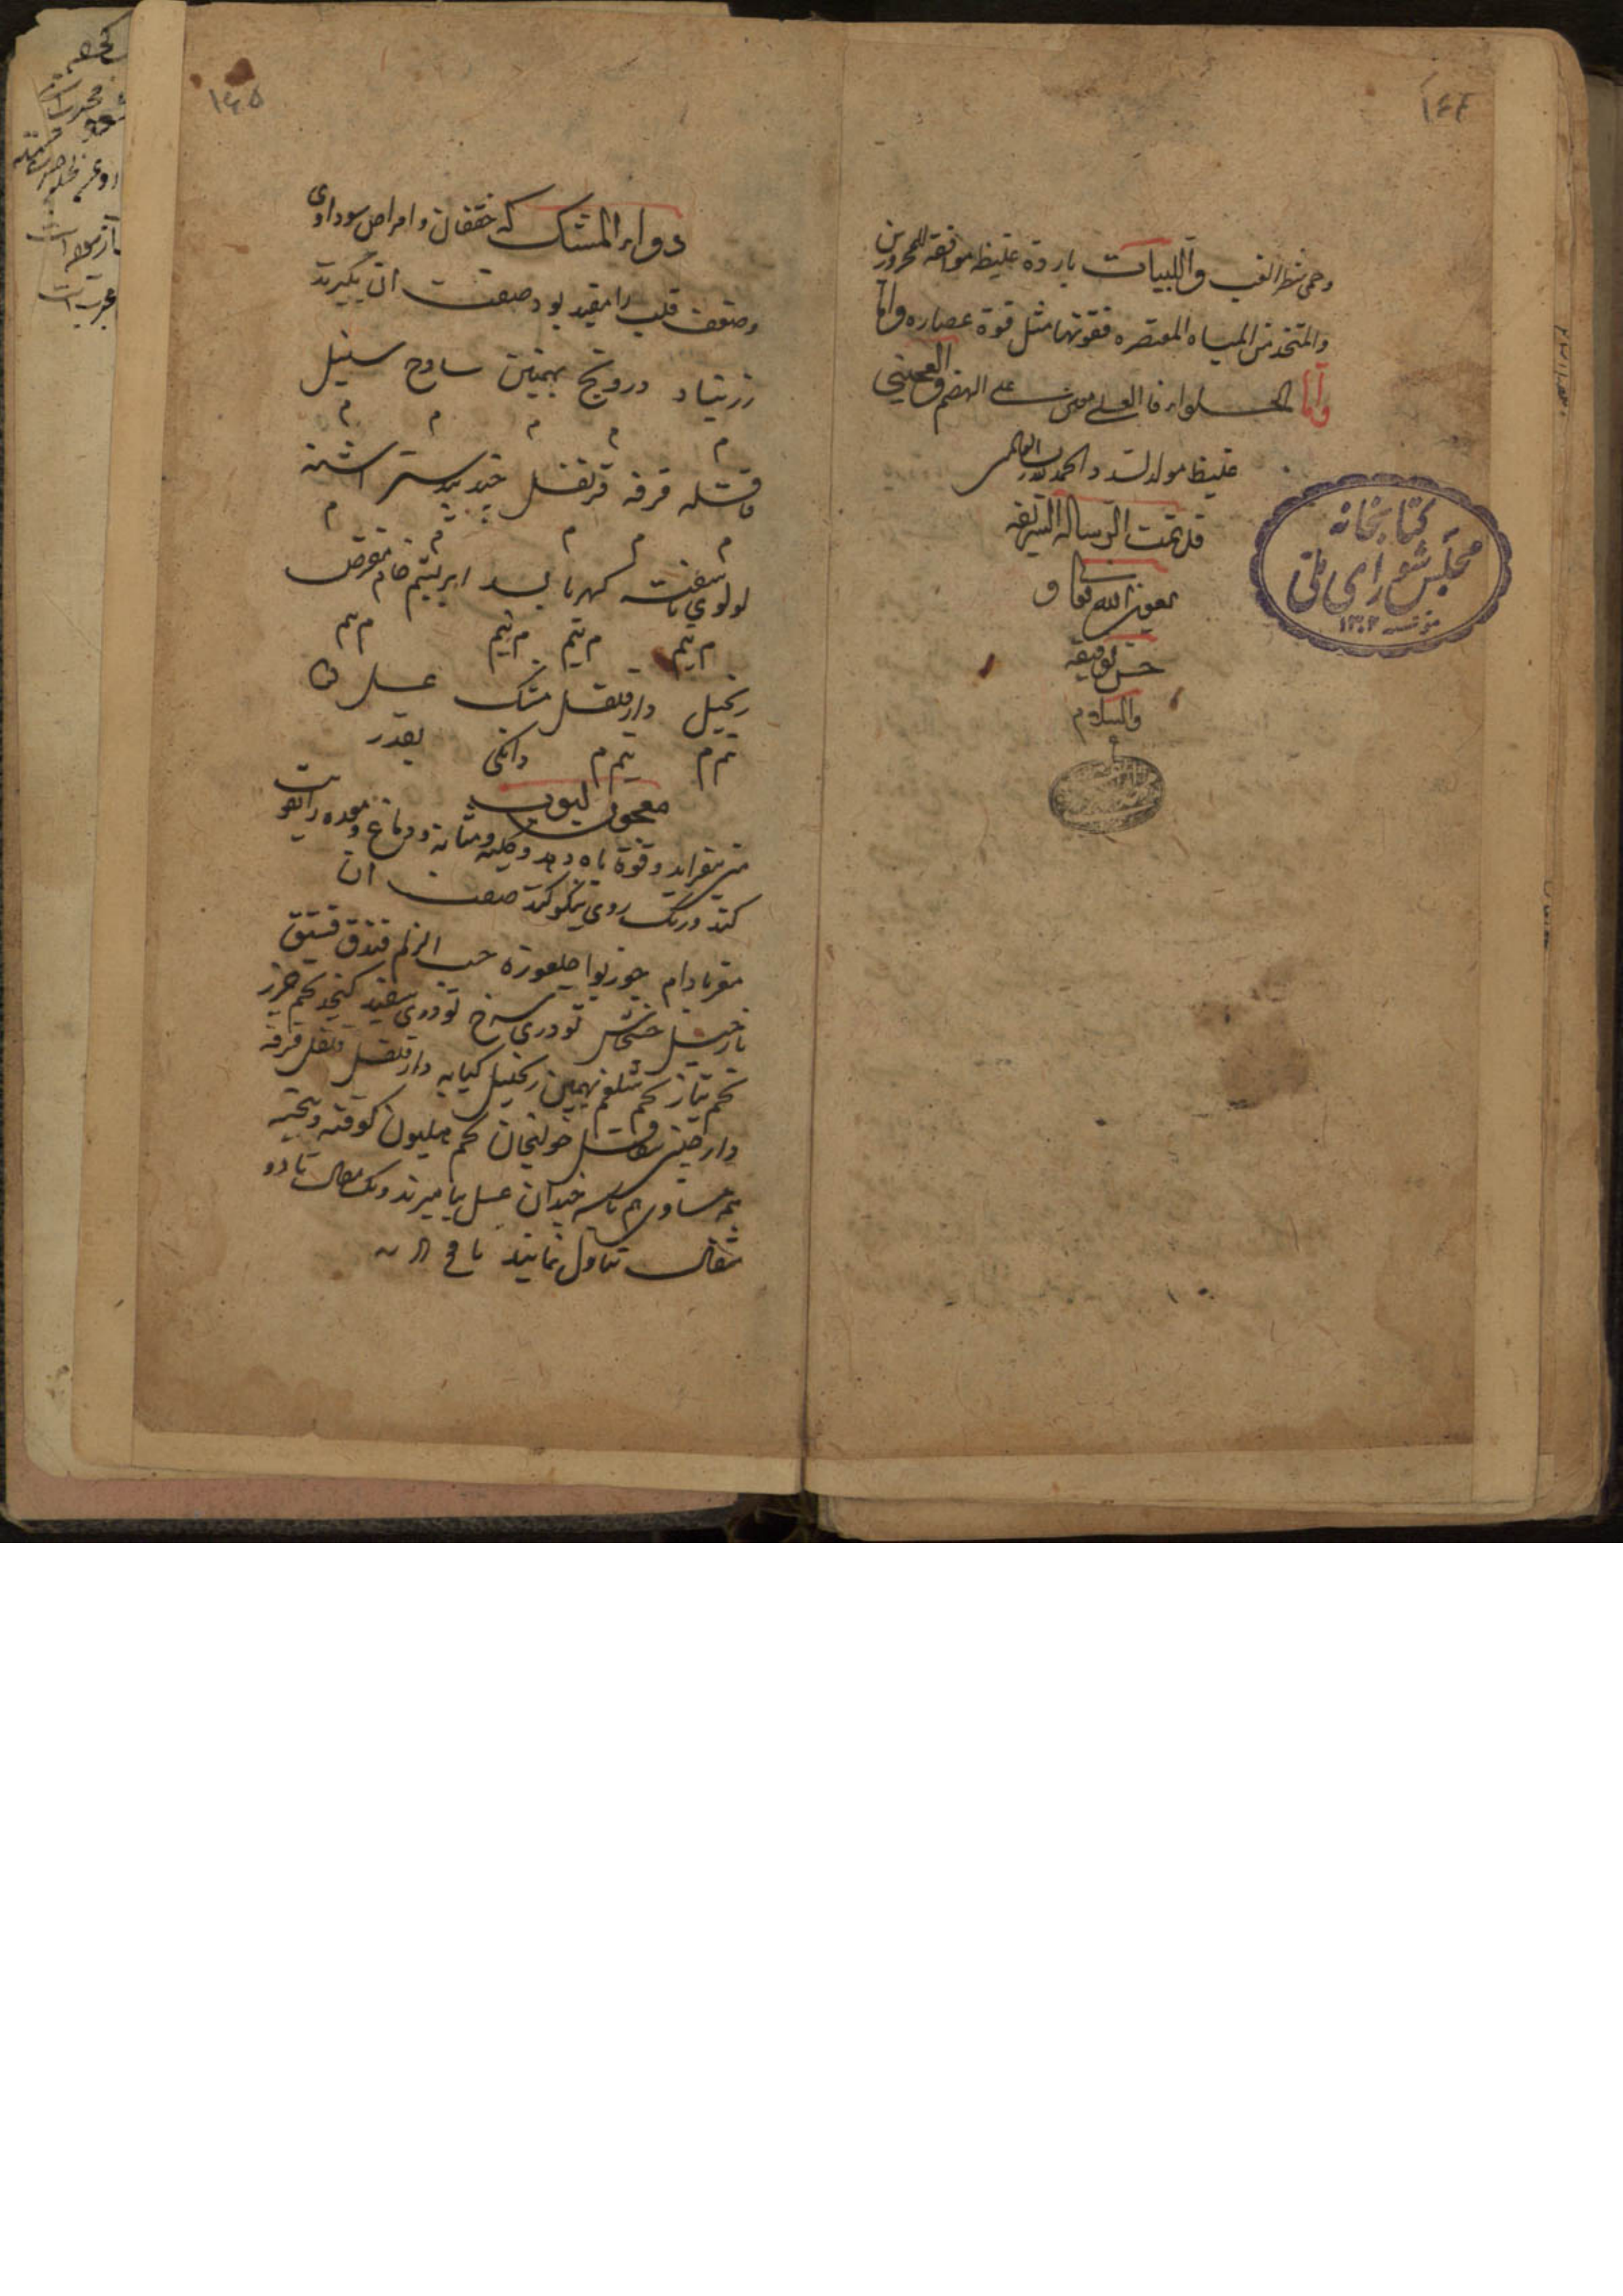 ۱۴۴
وحمی شطر الغب واللبیات باردة غلیظه موافقة للمحرورین
والمتخذ من المیاه المعتصره فقوتها مثل قوة عصاره واما
واما الحلواء فالعسلی معین علی الهضم والعجینی
غلیظ مولد لسدد والحمد لله رب العالمین
قد تمت الرسالة الشریفه
بعون الله تعالی و
حسن توفیقه
والسلام
کتابخانه
مجلس شورای ملی
۱۳۰۲
۱۴۵
دواء المشک که خفقان و امراض سوداوی
وضعف قلب را مفید بود صفت ان بگیرند
زرنباد درونج بهمنین سادج سنبل
م م م م م
قاقله قرفه قرنفل جندبیدستر اشنه
م م م م م
لولوی ناسفته کهربا بسد ابریشم خام مقرض
م نیم م نیم م نیم م نیم
زنجبیل دارفلفل مشک عسل
نیم م نیم م دانکی بقدر
معجون لبوب
منی بیفزاید و قوة باه دهد و کلیه و مثانه و دماغ و معده را تقویت
کند و رنک روی نیکو کند صفت ان
مغز بادام جوزبوا چلغوزه حب الزلم فندق فستق
نارجیل خشخاش تودری سرخ تودری سفید کنجد تخم جزر
تخم پیاز تخم شلغم بهمین زنجبیل کبابه دارفلفل فلفل قرفه
دارچینی خولنجان تخم هلیون کوفته و بیخته
همه مساوی هم با سه چندان عسل بیامیزند و یک مثقال تا دو
مثقال تناول نمایند